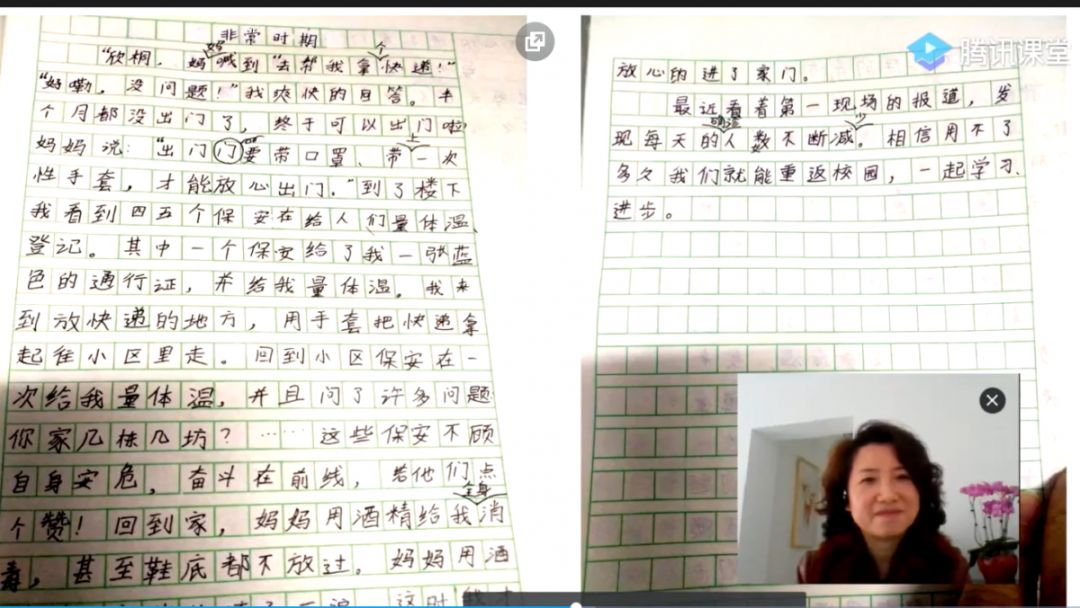 非常时期
"欣桐,妈妈喊到"去帮我拿个快递!"
"好嘞,没问题!"我爽快的回答。半
个月都没出门了,终于可以出门啦
妈妈说:"出门门要带口罩、带上一次
性手套,才能放心出门。"到了楼下
我看到四五个保安在给人们量体温、
登记。其中一个保安给了我一张蓝
色的通行证,并给我量体温。我来
到放快递的地方,用手套把快递拿
起往小区里走。回到小区保安在一
次给我量体温,并且问了许多问题
你家几栋几坊?……这些保安不顾
自身安危,奋斗在前线,给他们点
个赞!回到家,妈妈用酒精给我全身消
毒,甚至鞋底都不放过。妈妈用酒
这时我才
放心的进了家门。
最近看着第一现场的报道,发
现每天的确诊人数不断减少。相信用不了
多久我们就能重返校园,一起学习、
进步。
腾讯课堂